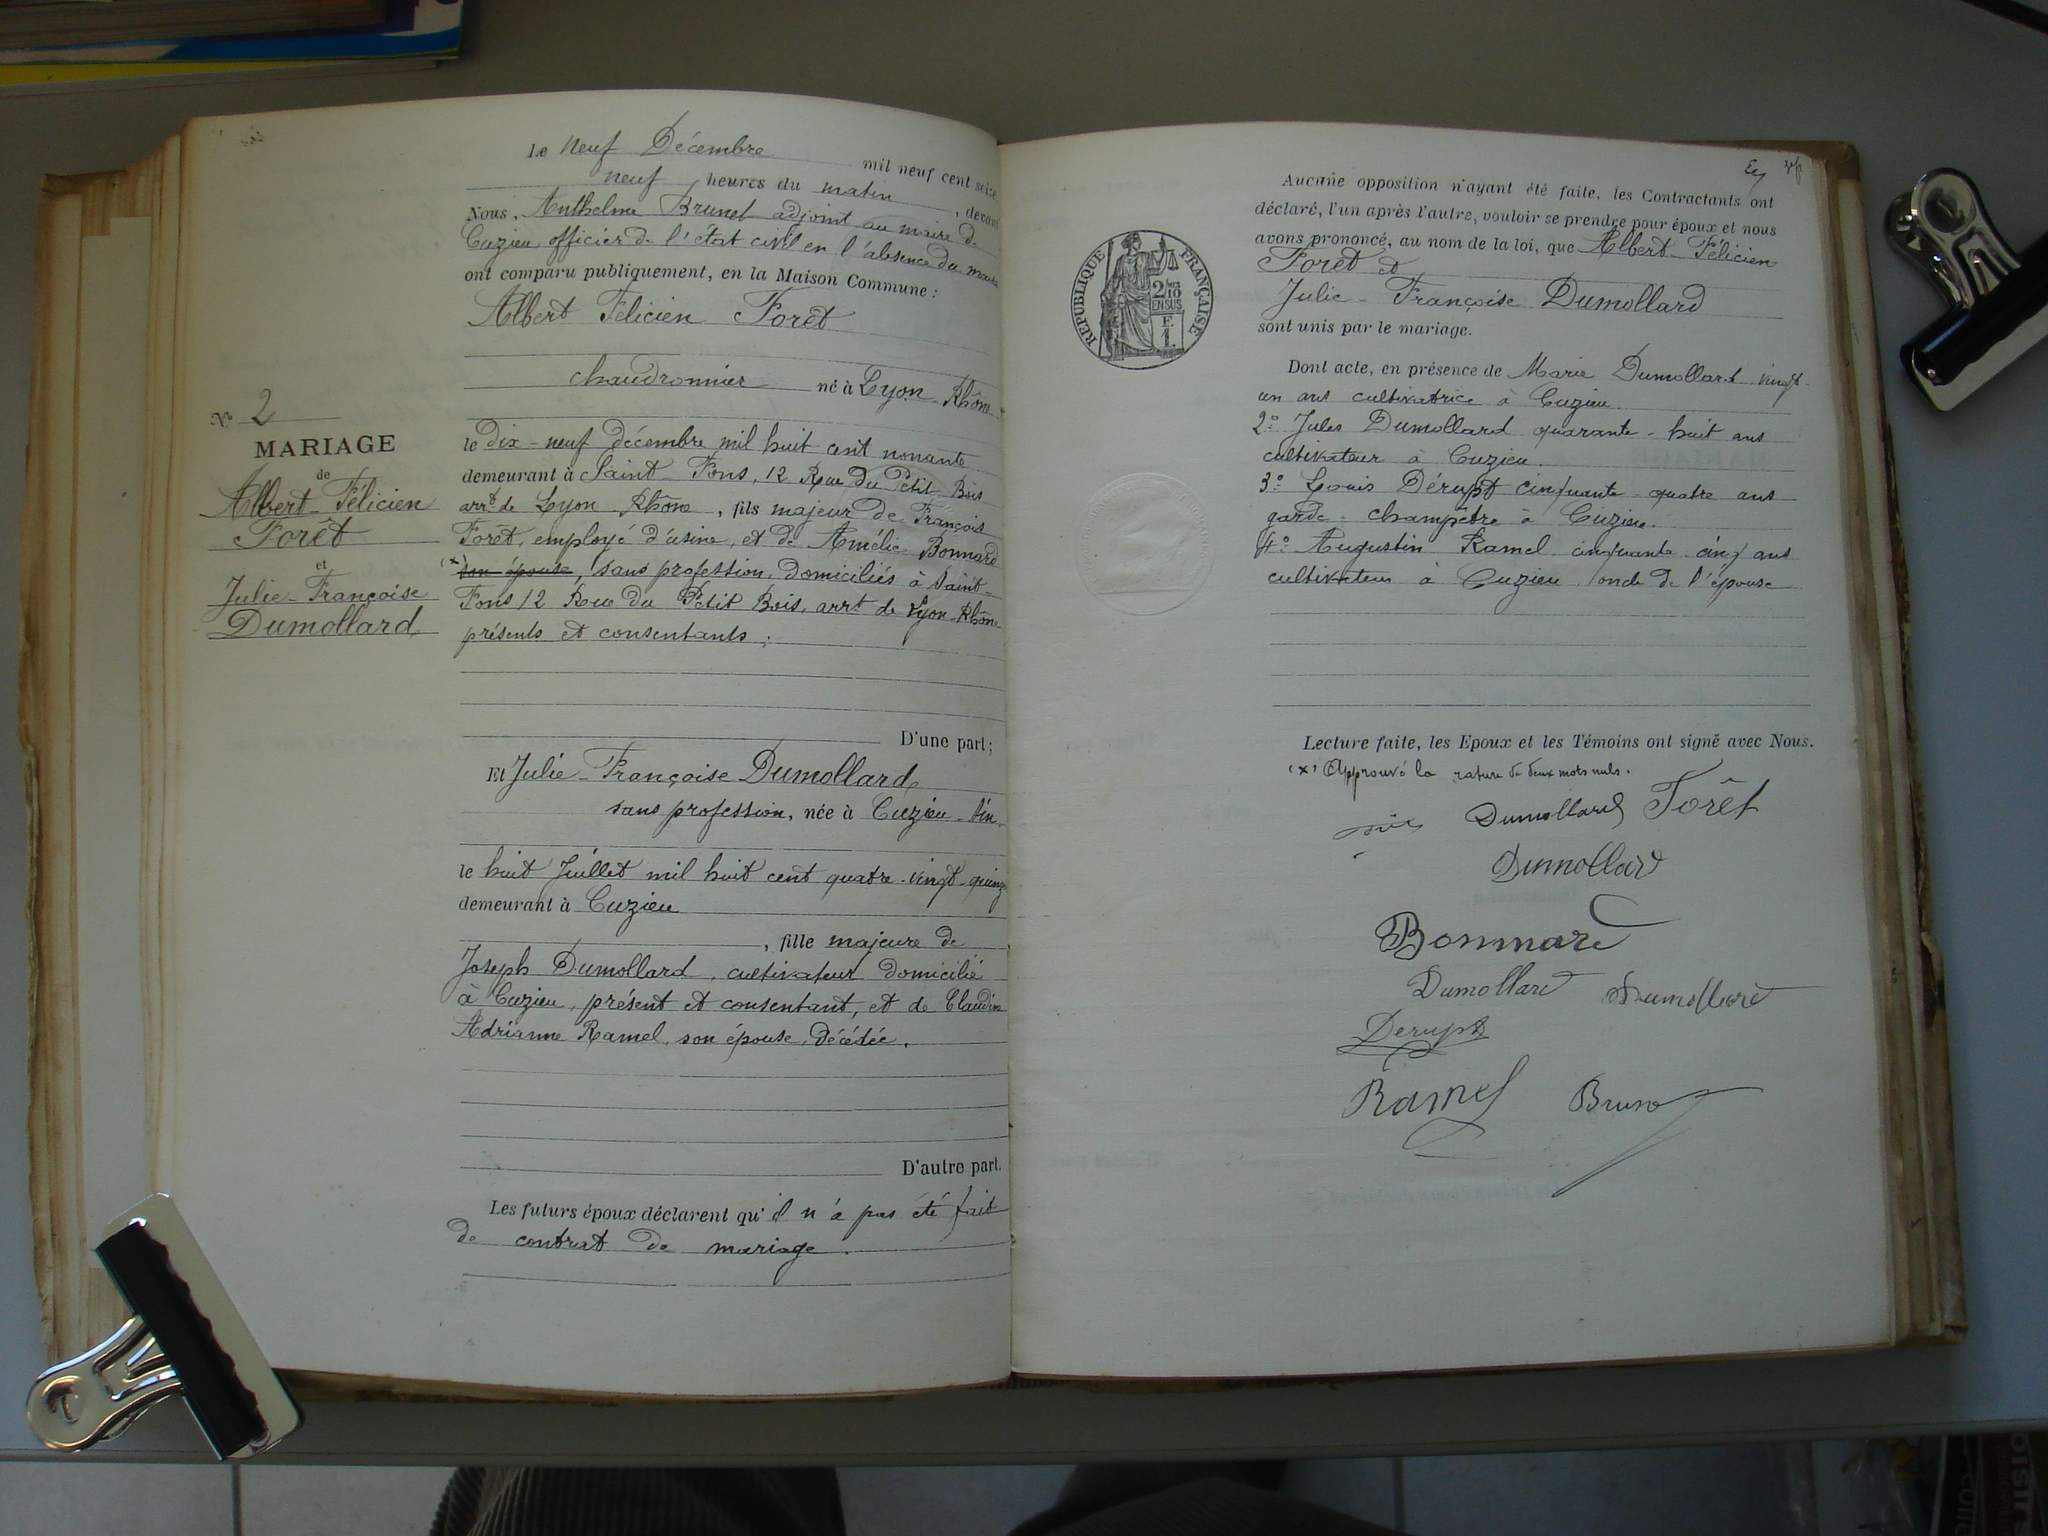 Le neuf Décembre mil neuf cent seize
neuf heures du matin, devant
Nous, Anthelme Brunet adjoint au maire de
Cuzieu officier de l'état civil en l'absence du maire
ont comparu publiquement, en la Maison Commune :
Albert Félicien Forêt
chaudronnier né à Lyon - Rhône -
le dix-neuf décembre mil huit cent nonante
demeurant à Saint-Fons, 12 Rue du Petit Bois
arrt de Lyon - Rhône, fils majeur de François
Forêt, employé d'usine, et de Amélie Bonnard
(x) son épouse, sans profession, domiciliés à Saint-
Fons 12 Rue du Petit Bois, arrt de Lyon - Rhône
présents et consentants ;
D'une part ;
Et Julie - Françoise Dumollard
sans profession, née à Cuzieu - Ain -
le huit Juillet mil huit cent quatre-vingt-quinze
demeurant à Cuzieu
, fille majeure de
Joseph Dumollard, cultivateur domicilié
à Cuzieu, présent et consentant, et de Claudine
Adrianne Ramel, son épouse, décédée.
D'autre part.
Les futurs époux déclarent qu'il n'a pas été fait
de contrat de mariage.
No 2
MARIAGE
de
Albert-Félicien
Forêt
et
Julie-Françoise
Dumollard
Aucune opposition n'ayant été faite, les Contractants ont
déclaré, l'un après l'autre, vouloir se prendre pour époux et nous
avons prononcé, au nom de la loi, que Albert-Félicien
Forêt et
Julie - Françoise Dumollard
sont unis par le mariage.
Dont acte, en présence de Marie Dumollard vingt-
un ans cultivatrice à Cuzieu.
2° Jules Dumollard quarante-huit ans
cultivateur à Cuzieu.
3° Louis Dérupt cinquante-quatre ans
garde-champêtre à Cuzieu.
4° Augustin Ramel cinquante cinq ans
cultivateur à Cuzieu oncle de l'épouse
Lecture faite, les Epoux et les Témoins ont signé avec Nous.
(x) Approuvé la rature de deux mots nuls.
Dumollard Forêt
Dumollard
Bonnard
Dumollard Dumollard
Derupt
Ramel
RÉPUBLIQUE FRANÇAISE
2/10
EN SUS
E.
1.